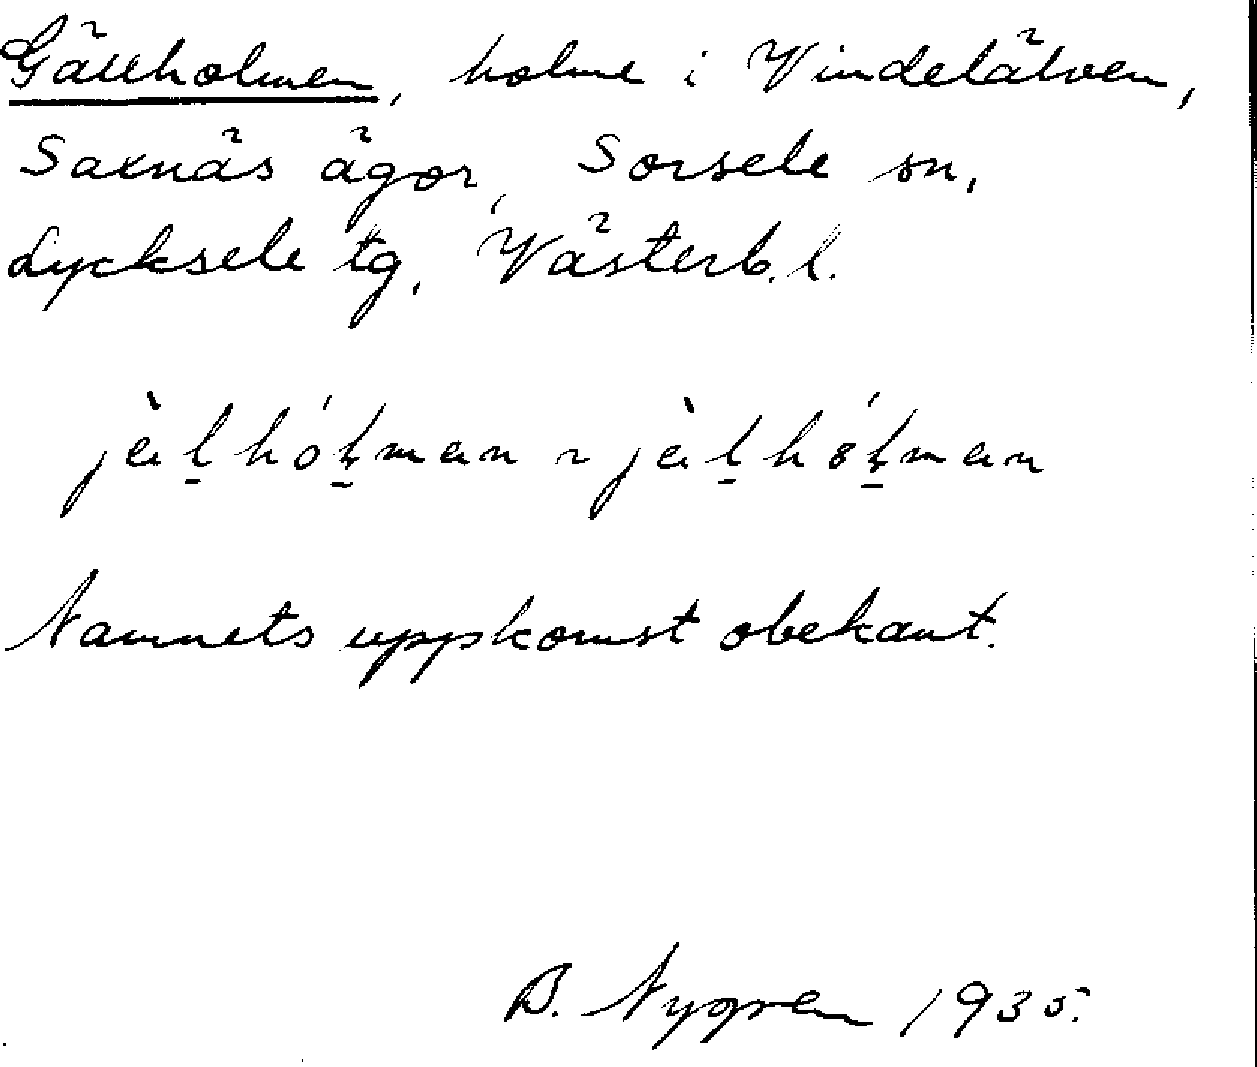 Gällholmen, holme i Vindelälven,
Saxnäs ägor, Sorsele sn,
Lycksele tg, Västerb. l.
jèḻhóḻman ~ jèḻhǿḻman
Namnets uppkomst obekant.
B. Nygren 1935.